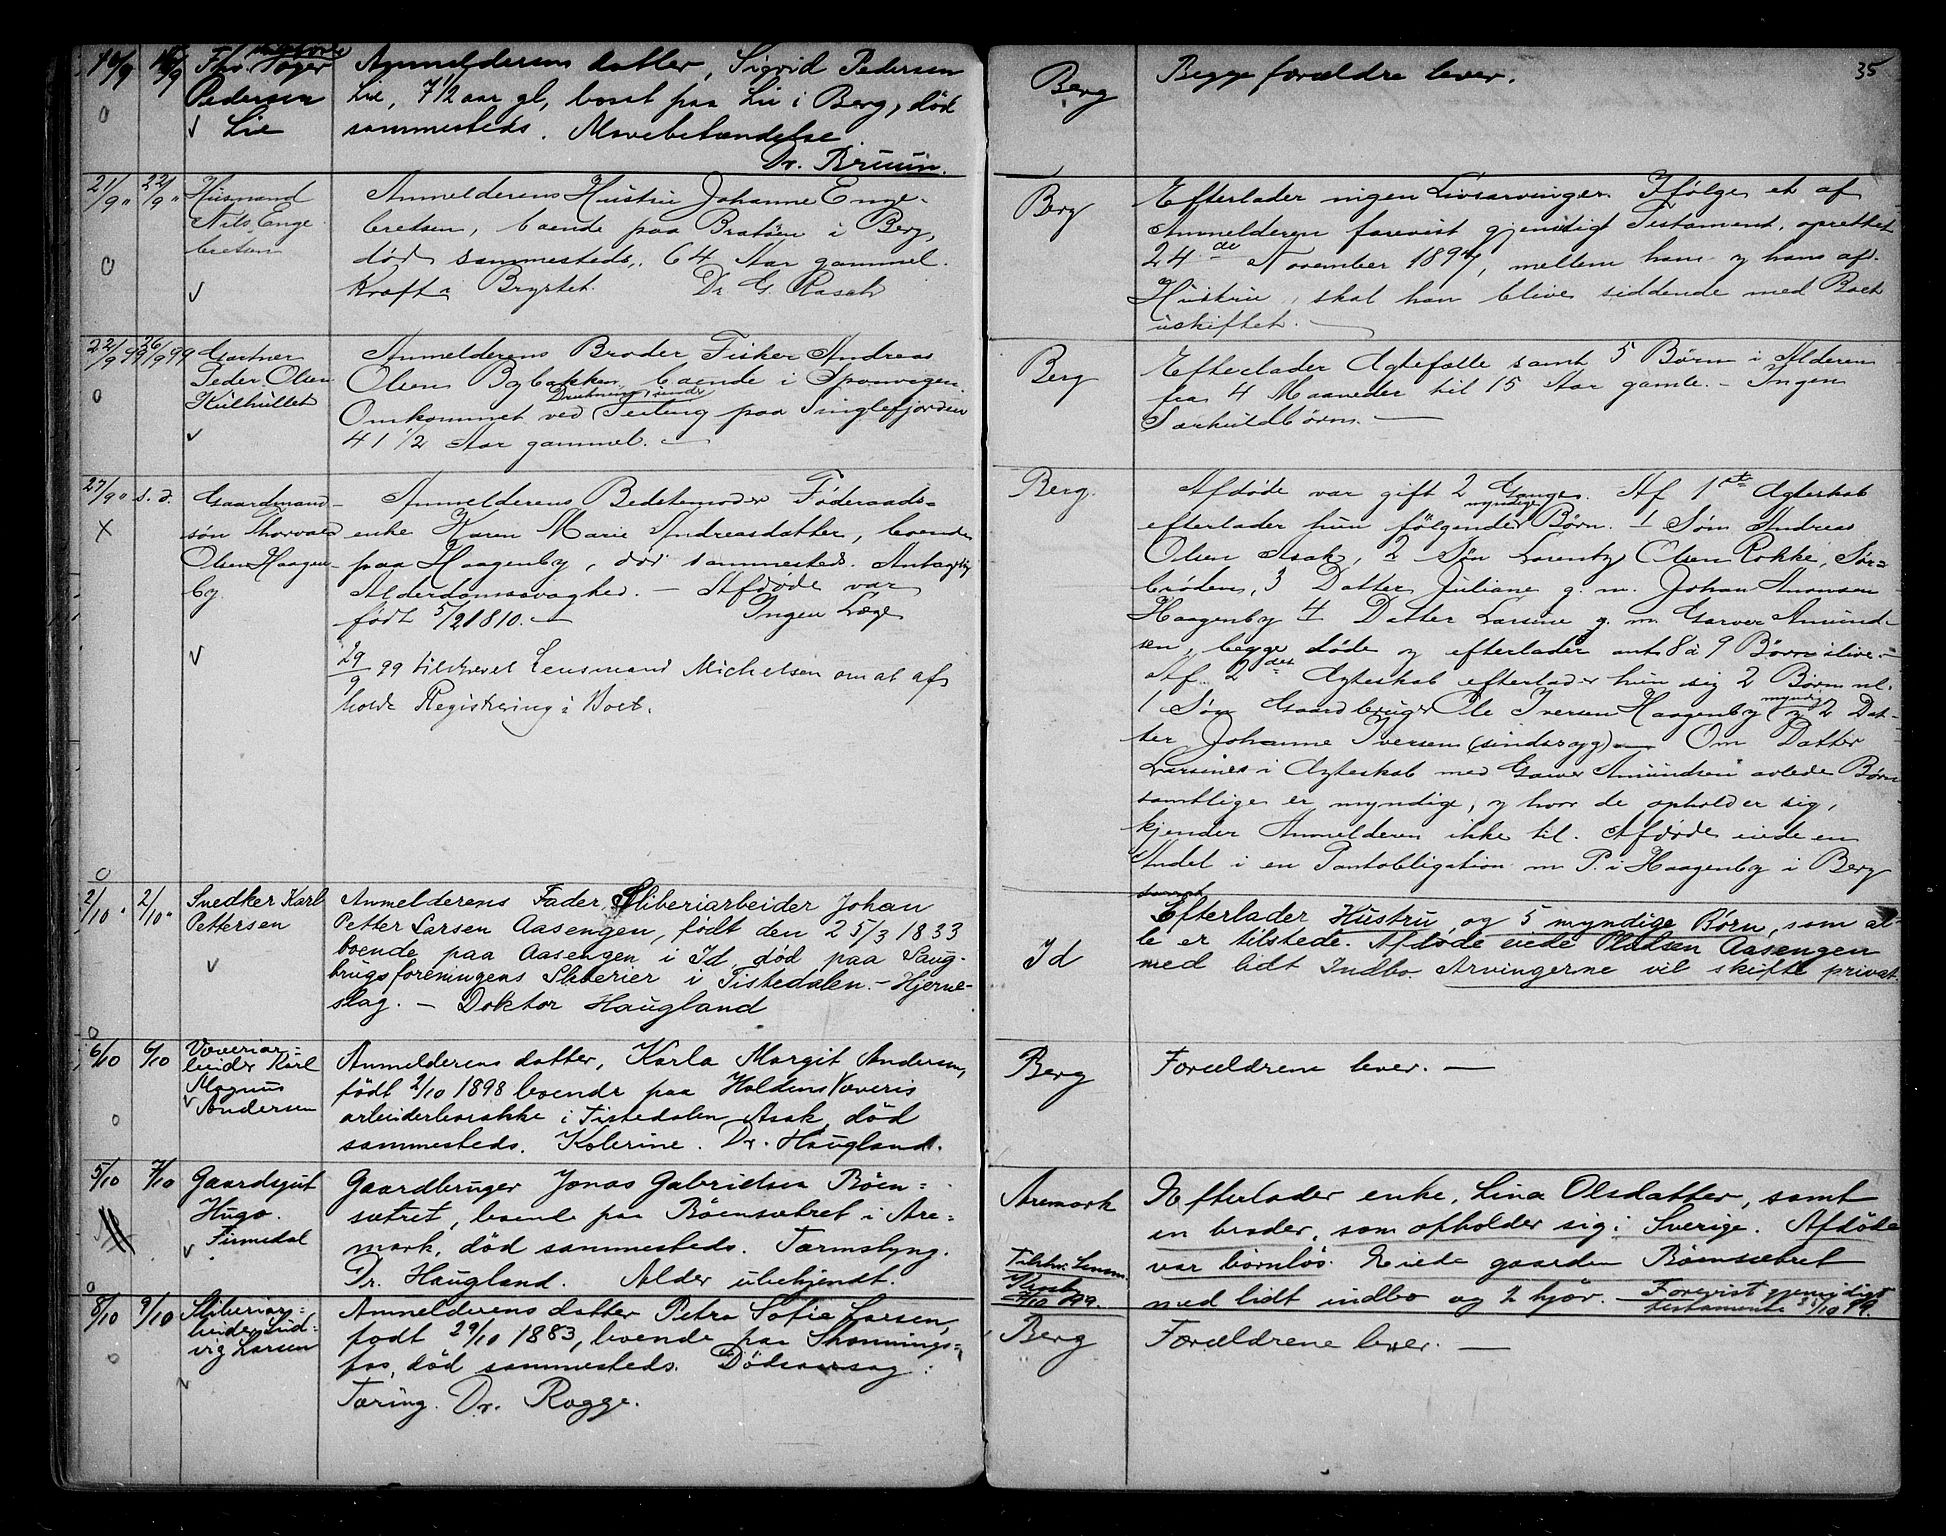 35
18/9
Pedersen
Lie
Anmelderens datter, Sigrid Pedersen
Lie, 7 1/2 aar gl, bosat paa Lie i Berg, død
sammesteds. Mavebetændelse
Dr. Bruun.
Berg
Begge forældre lever.
21/9 " 22/9 "
Husmand
Nils Enge
bretsen
Anmelderens Hustru Johanne Enge-
bretsen, boende paa i Berg,
død sammesteds, 64 Aar gammel.
Kræft i Brystet. Dr G. Rasch
Berg
Efterlader ingen Livsarvinger. Ifølge et af
Anmelderen forevist gjensidigt Testament, oprettet
24de November 1897, mellem ham og hans afd.
Hustru, skal han blive siddende med Boet
uskiftet.
22/9 99 26/9 99
Gartner
Peder Olsen
Kulhullet
Anmelderens Broder Fisker Andreas
Olsen Bybakken, boende i Sponvigen.
Drukning
Omkommet ved Seiling paa Singlefjorden
41 1/2 Aar gammel.
Berg
Efterlader Ægtefælle samt 5 Børn i Alderen
fra 4 Maaneder til 15 Aar gamle. - Ingen
Særkuldbørn.
27/9 " s. d.
Gaardmand-
søn Thorvald
Olsen Haagen-
by.
Anmelderens Bedstemoder Føderaads-
enke Karen Marie Andreasdatter, boende
paa Haagenby, død sammesteds. Antagelig
Alderdomssvaghed. - Afdøde var
født 5/2 1810. Ingen Læge
29/9 99 tilskrevet Lensmand Michelsen om at af
holde Registrering i Boet.
Berg.
Afdøde var gift 2 Gange. Af 1ste Ægteskab
myndige
efterlader hun følgende Børn. 1 Søn Andreas
Olsen Asak, 2 Søn Lorentz Olsen Rokke, Sør-
brøden, 3 Datter Juliane g. m. Johan Amonsen
Haagenby 4 Datter Larsine g. m. Garver Amund-
sen, begge døde og efterlader ant. 8 à 9 Børn ilive.-
Af 2det Ægteskab efterlader hun sig 2 Børn nl.
myndig
1 Søn Gaardbruger Ole Iversen Haagenby og 2 Dat-
ter Johanne Iversen (sindssyg) Om Datter
Larsines i Ægteskab med Garver Amundsen avlede Børn
samtlige er myndige, og hvor de opholder sig,
kjender Anmelderen ikke til. Afdøde eiede en
Andel i en Pantobligation m P. i Haagenby i Berg
2/10 " 2/10 "
Snedker Karl
Pettersen
Anmelderens Fader, Sliberiarbeider Johan
Petter Larsen Aasengen, født den 25/3 1833
boende paa Aasengen i Id, død paa Saug-
brugsforeningens Sliberier i Tistedalen. - Hjerne-
slag. - Doktor Haugland
Id
Efterlader Hustru, og 5 myndige Børn, som al-
le er tilstede. Afdøde eiede Pladsen Aasengen
med lidt Indbo. Arvingerne vil skifte privat.
6/10 6/10
Væveriar-
beider Karl
Magnus
Andersen
Anmelderens datter, Karla Margit Andersen,
født 2/10 1898 boende paa Haldens Væveris
arbeiderbarakke i Tistedalen Asak, død
sammesteds. Kolerine. Dr. Haugland.
Berg
Forældrene lever. -
5/10 7/10
Gaardsgut
Hugo
Firmedal
Gaardbruger Jonas Gabrielsen Böen-
sætret, boende paa Böensætret i Are-
mark, død sammesteds. Tarmslyng.
Dr. Haugland. Alder ubekjendt.
Aremark
Tilskr. Lensm.
Efterlader enke, Lina Olsdatter, samt
en broder, som opholder sig i Sverige. Afdøde
var børnløs. Eiede gaarden Böensætret
med lidt indbo og 2 kjør. - Forevist gjensidigt
testamente 3/10 99.
8/10 9/10
Sliberiar-
beider Lud-
vig Larsen
Anmelderens datter Petra Sofie Larsen,
født 29/10 1883, boende paa Skonnings-
fos, død sammesteds. Dødsaarsag:
Tæring. Dr. Rogge.
Berg
Forældrene lever. -